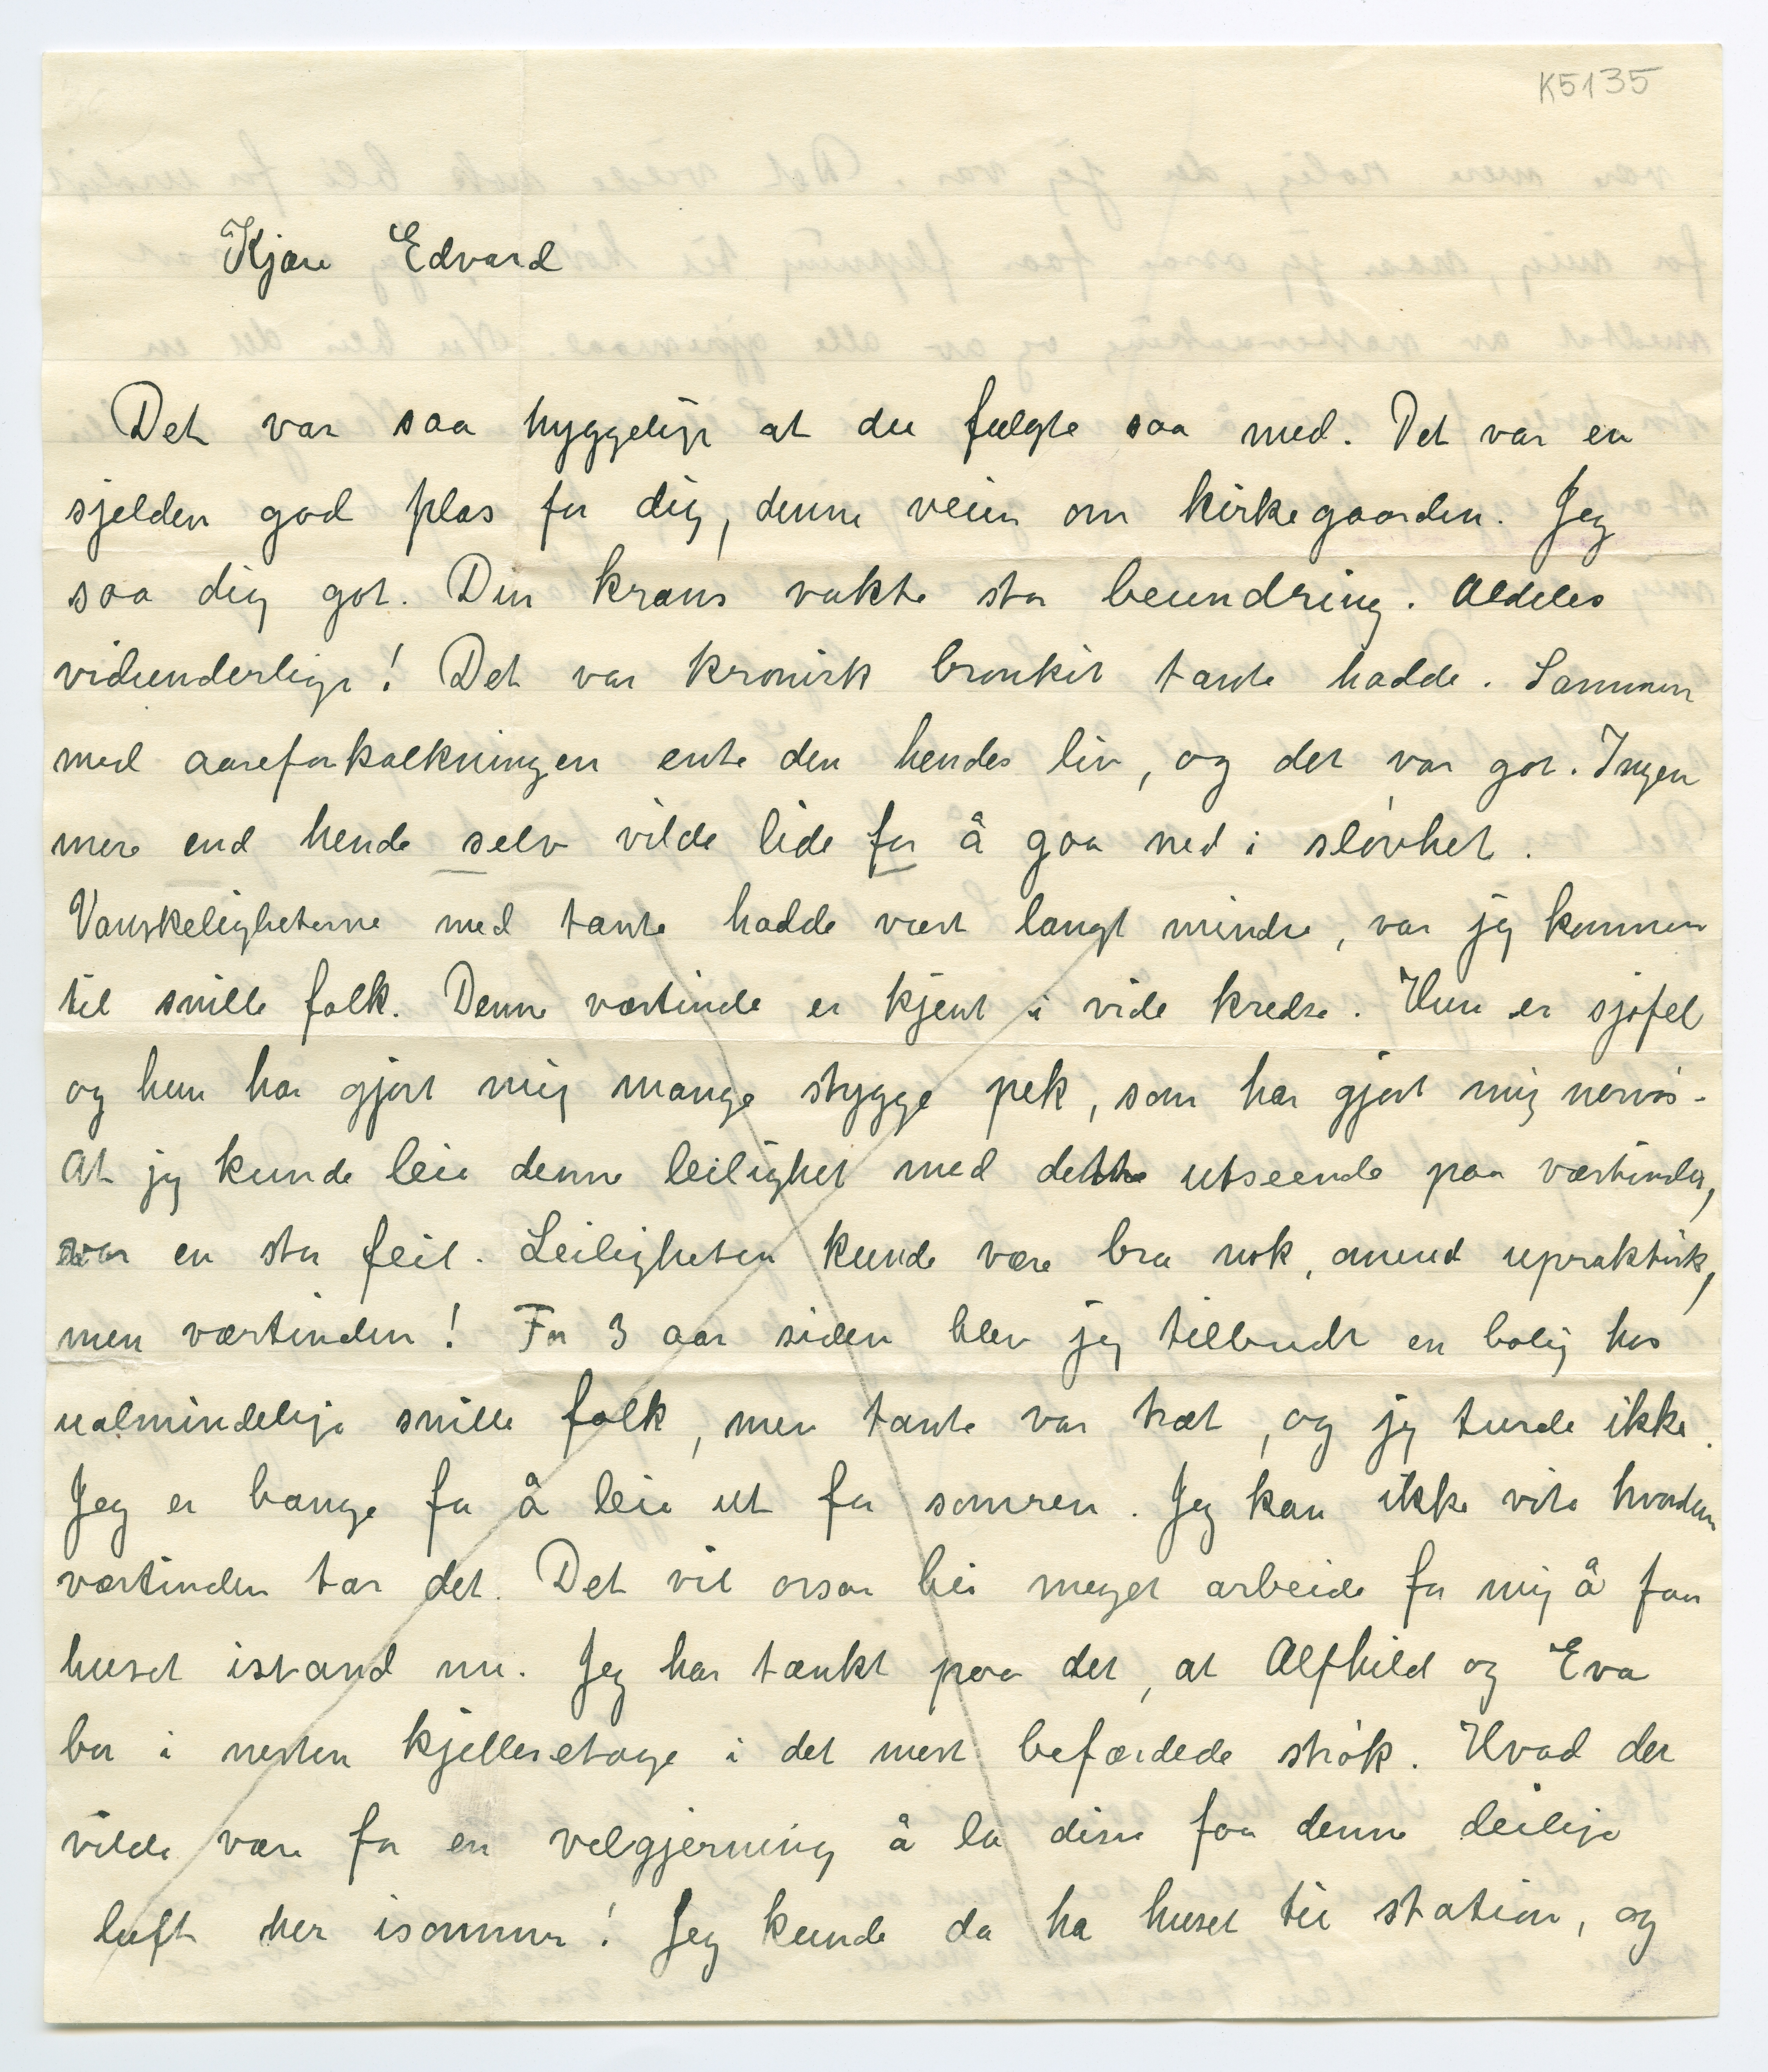 K5135
Kjære Edvard
Det var saa hyggelig at du fulgte saa med. Det var en
sjelden god plas for dig, denne veien om kirkegaarden. Jeg
saa dig got. Din krans vakte stor beundring. Aldeles
vidunderlige! Det var kronisk bronkit tante hadde. Sammen
med aareforkalkningen ente den hendes liv, og det var got. Ingen
mere end hende selv vilde lide for å gaa ned i sløvhet.
Vanskeligheterne med tante hadde vært langt mindre, var jeg kommen
til snille folk. Denne værtinde er kjent i vide kredse. Hun er sjofel
og hun har gjort mig mange stygge pek, som har gjort mig nervøs.
At jeg kunde leie denne leilighet med dette utseende paa værtinden,
var en stor feil. Leiligheten kunde være bra nok, omend upraktisk,
men værtinden! For 3 aar siden blev jeg tilbudt en bolig hos
ualmindelige snille folk, men tante var træt, og jeg turde ikke.
Jeg er bange for å leie ut for somren. Jeg kan ikke vite hvordan
værtinden tar det. Det vil ossaa bli meget arbeide for mig å faa
huset istand nu. Jeg har tænkt paa det, at Alfhild og Eva
bor i nesten kjelleretage i det mest befærdede strøk. Hvad det
vilde være for en velgjerning å la disse faa denne deilige
luft her isommer! Jeg kunde da ha huset til station, og